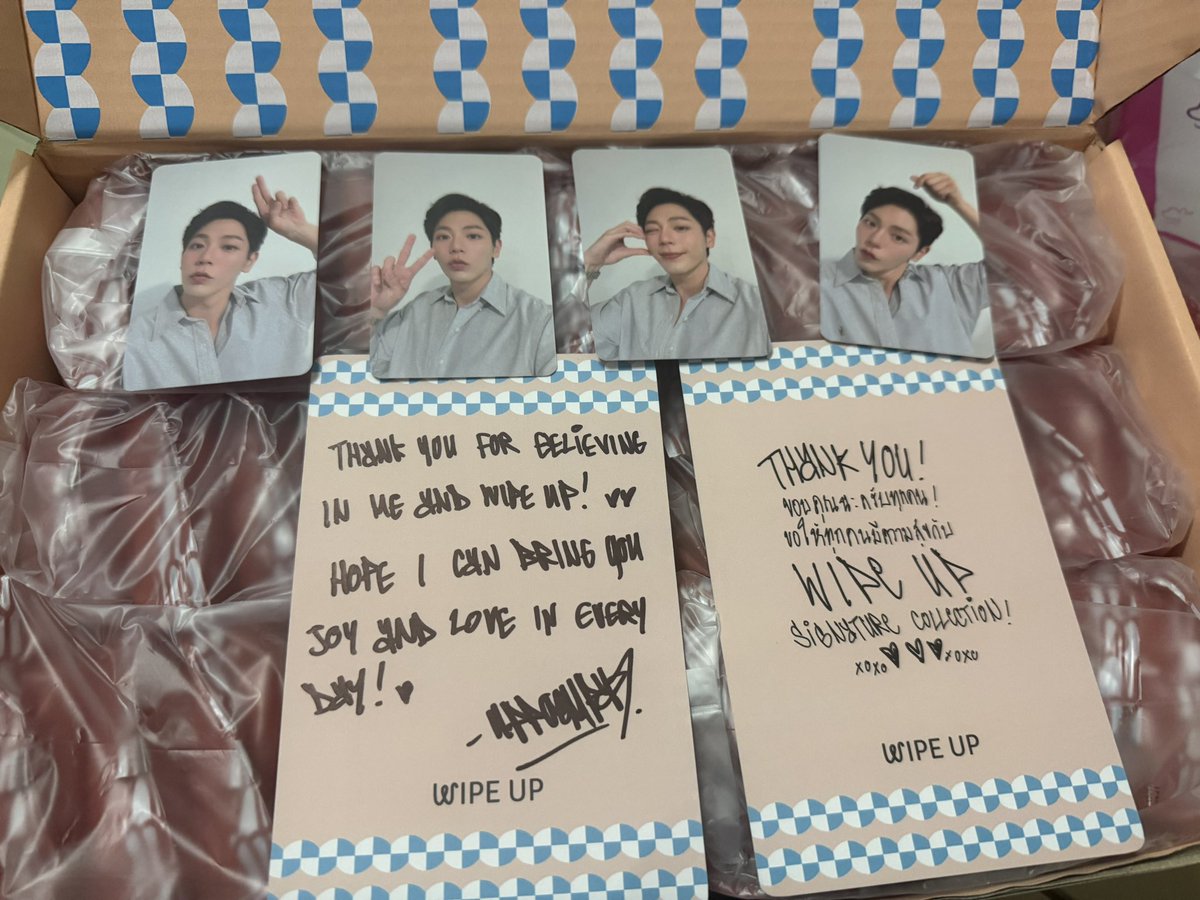 THANK YOU FOR BELIEVING
IN ME AND WIPE UP!
HOPE I CAN BRING YOU
JOY AND LOVE IN EVERY
DAY!
WIPE UP
THANK YOU!
ขอบคุณนะครับทุกคน!
ขอให้ทุกคนมีความสุขกับ
WIPE UP
SIGNATURE COLLECTION!
xoxo xoxo
WIPE UP